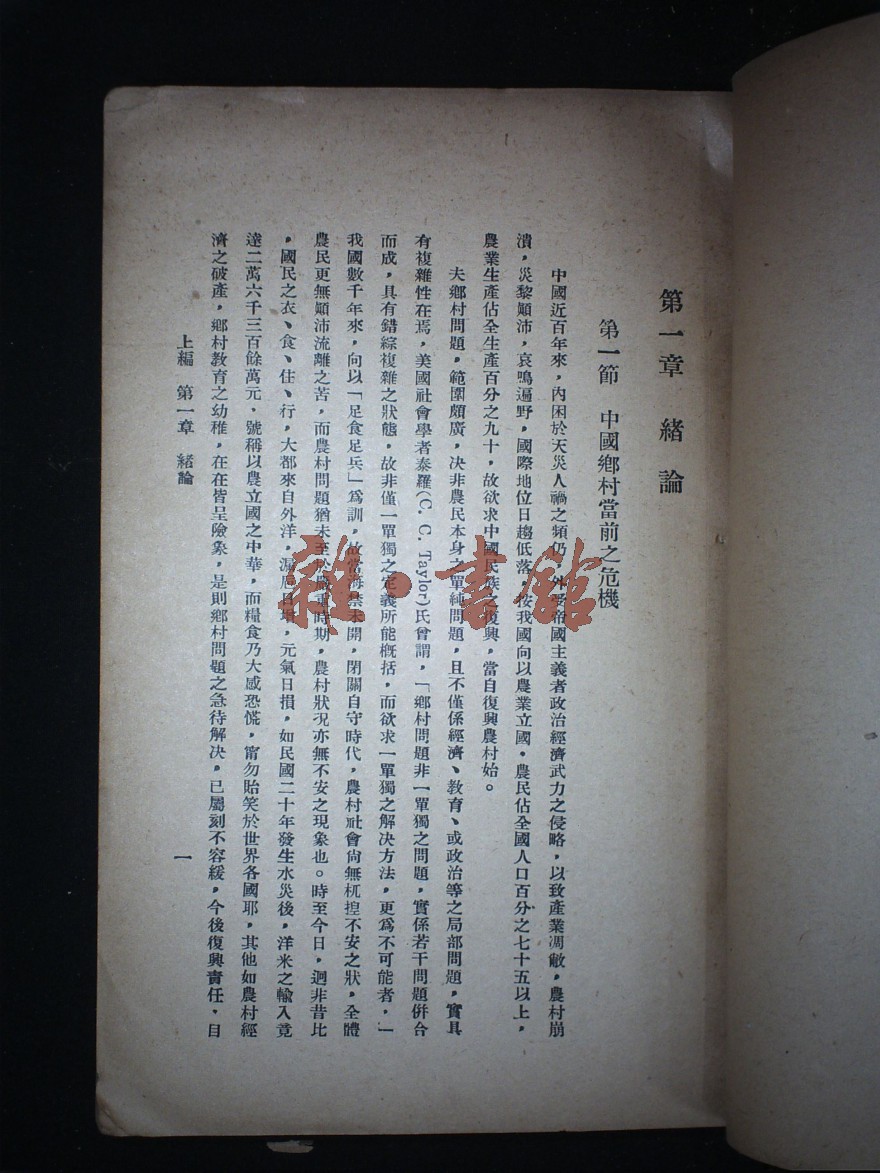 第一章 緒論
第一節 中國鄉村當前之危機
中國近百年來，內困於天災人禍之頻仍，外受帝國主義者政治經濟武力之侵略，以致產業凋敝，農村崩
潰，災黎顚沛，哀鳴遍野，國際地位日趨低落。按我國向以農業立國，農民佔全國人口百分之七十五以上，
農業生產佔全生產百分之九十，故欲求中國民族之復興，當自復興農村始。
夫鄉村問題，範圍頗廣，决非農民本身之單純問題，且不僅係經濟、教育、或政治等之局部問題，實具
有複雜性在焉，美國社會學者泰羅(C. C. Taylor)氏曾謂，「鄉村問題非一單獨之問題，實係若干問題併合
而成，具有錯綜複雜之狀態，故非僅一單獨之定義所能槪括，而欲求一單獨之解决方法，更爲不可能者，」
我國數千年來，向以「足食足兵」爲訓，故當海禁未開，閉關自守時代，農村社會尙無杌隉不安之狀，全體
農民更無顚沛流離之苦，而農村問題猶未至於嚴重時期，農村狀况亦無不安之現象也。時至今日，迥非昔比
，國民之衣、食、住、行，大都來自外洋，漏卮日增，元氣日損，如民國二十年發生水災後，洋米之輸入竟
達二萬六千三百餘萬元，號稱以農立國之中華，而糧食乃大感恐慌，甯勿貽笑於世界各國耶，其他如農村經
濟之破產，鄉村教育之幼稚，在在皆呈險象，是則鄉村問題之急待解决，已屬刻不容緩，今後復興責任，自
上編 第一章 緒論
一
雜·書館